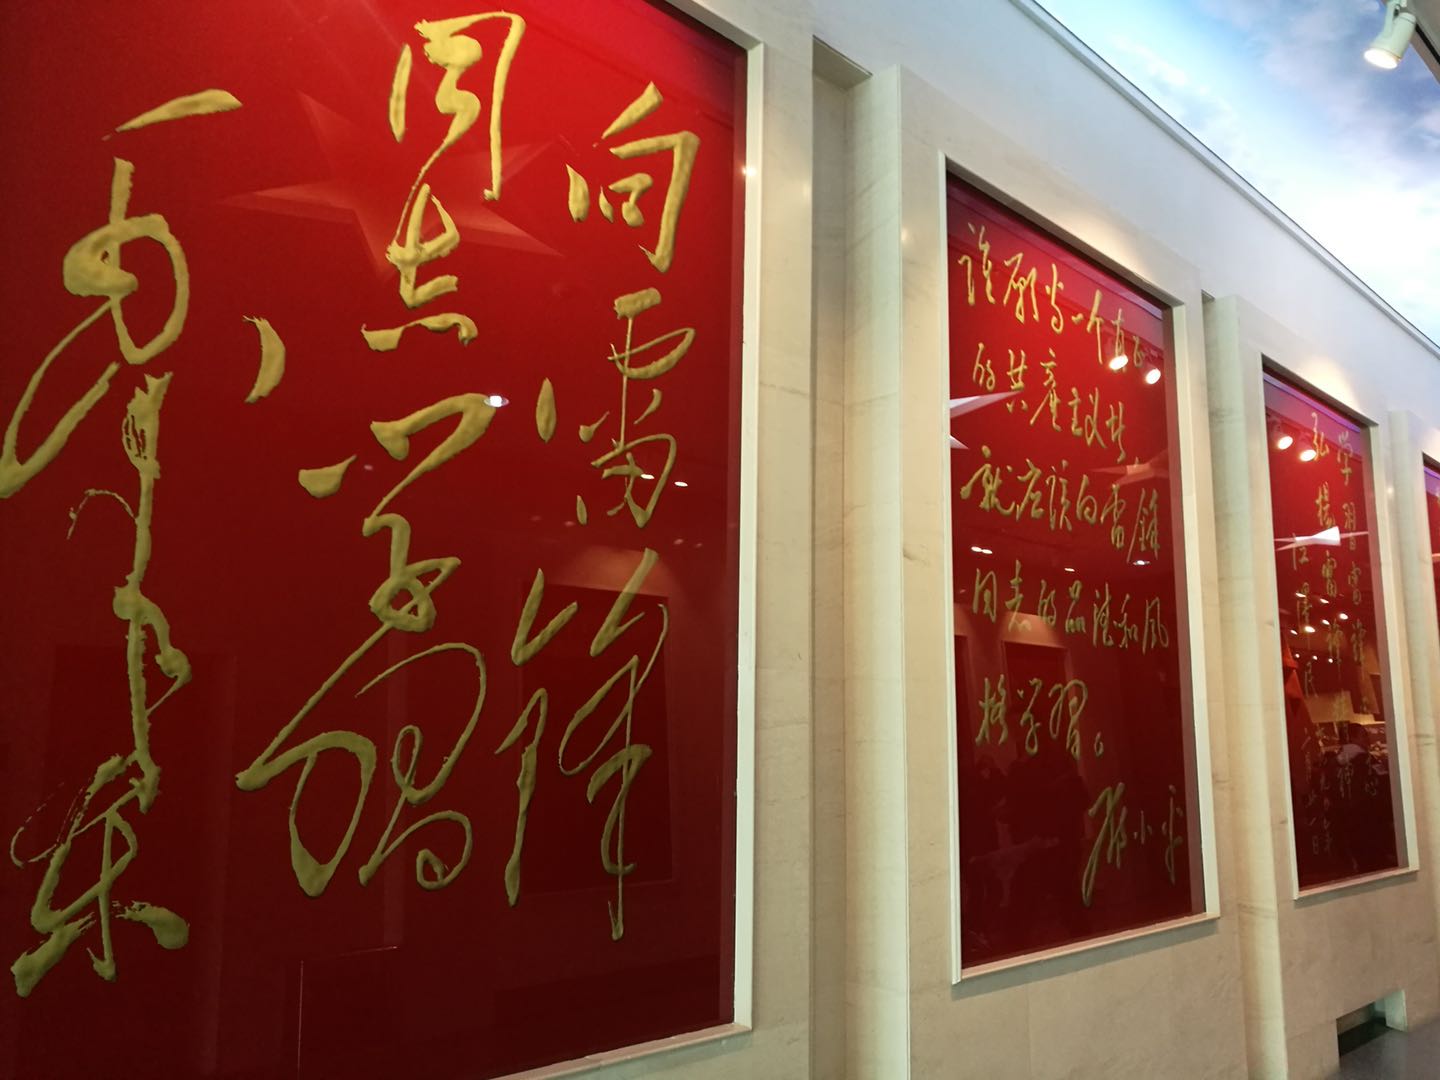 向雷锋
同志学习
毛泽东
谁愿当一个真正
的共産主义者，
就应该向雷锋
同志的品德和风
格学习。
邓小平
学习雷锋
弘扬雷锋精神
江泽民